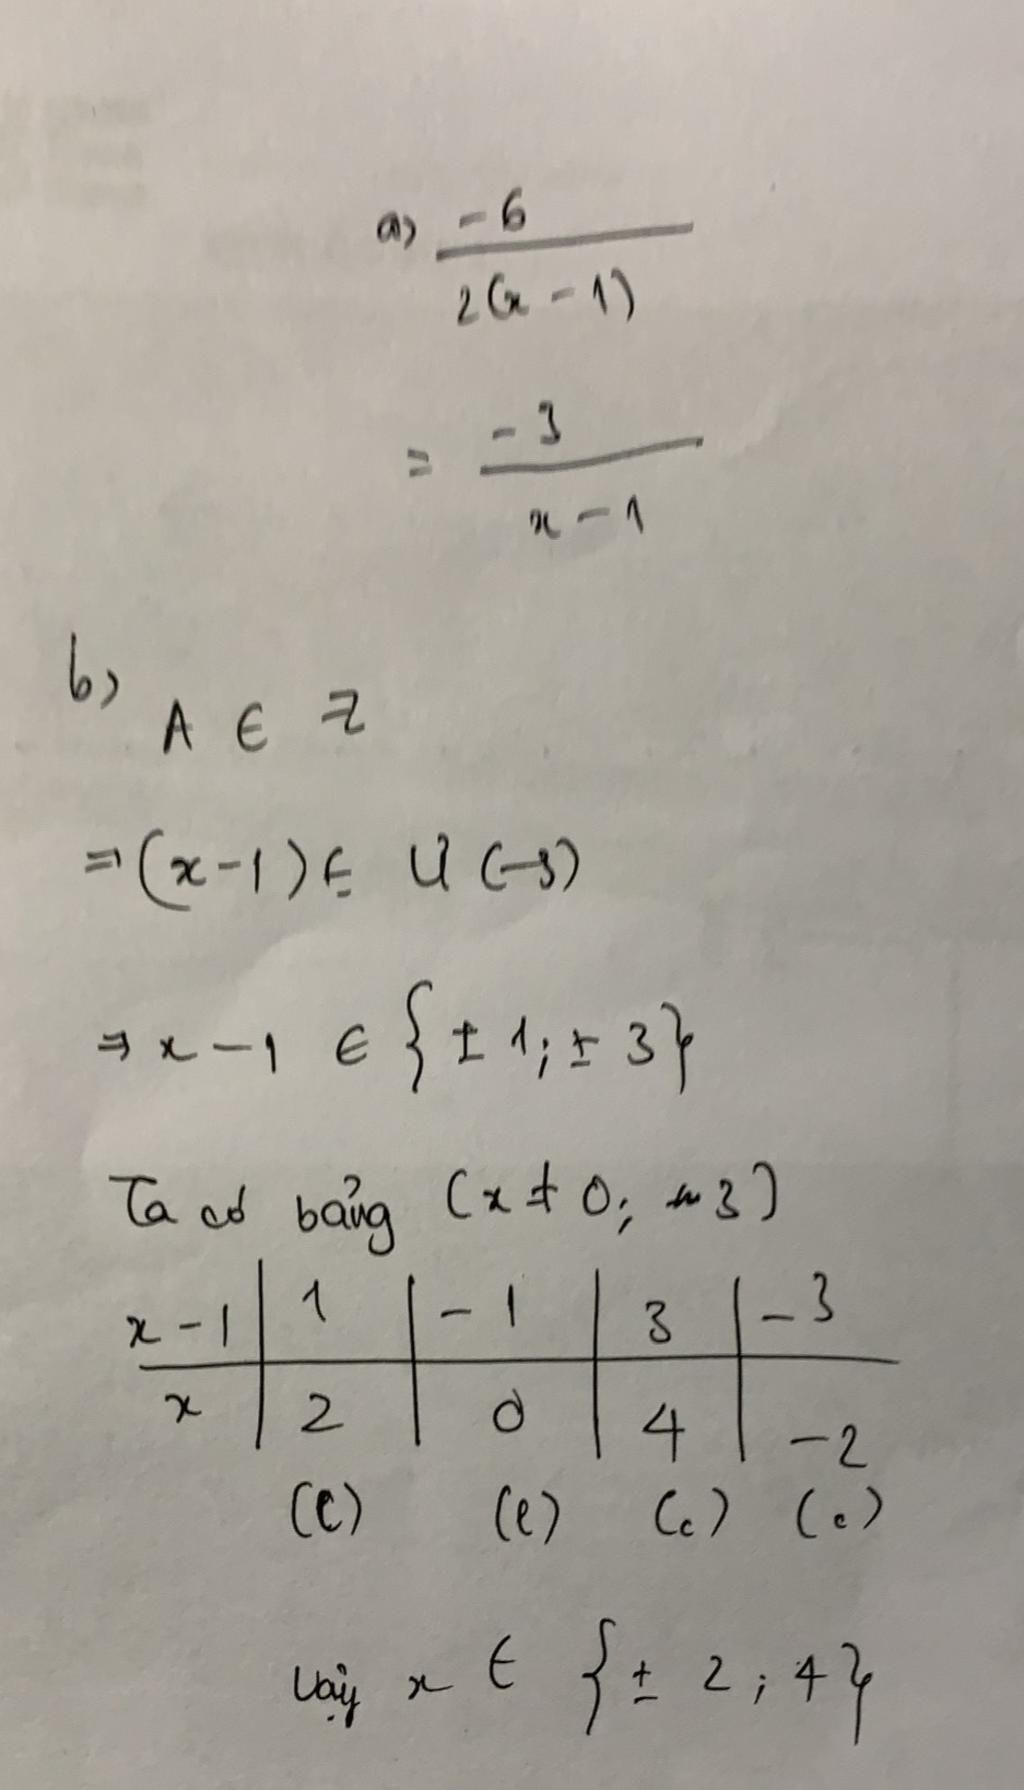 a) -6 / 2(x - 1)
= -3 / x - 1
b)
A ∈ Z
⇒ (x-1) ∈ Ư (-3)
⇒ x - 1 ∈ {± 1; ± 3}
Ta có bảng (x ≠ 0; 3)
x - 1 | 1 | - 1 | 3 | - 3
x | 2 | 0 | 4 | -2
(l) (l) (c) (c)
Vậy x ∈ {± 2; 4}